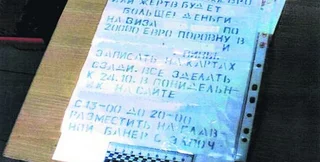 ИЛИ ЖЕРТВ БУДЕТ
БОЛЬШЕ! ДЕНЬГИ
НА ВИЗА ПО
20000 ЕВРО ПОРОВНУ В
ЗАПИСАТЬ НА КАРТАХ
СЗАДИ. ВСЕ СДЕЛАТЬ
К 24.10. В ПОНИДЕЛЬН-
ИК НА САЙТЕ
С 13-00 ДО 20-00
РАЗМЕСТИТЬ НА ГЛАВ
НОЙ БАНЕР С ЭЛ.ПОЧ